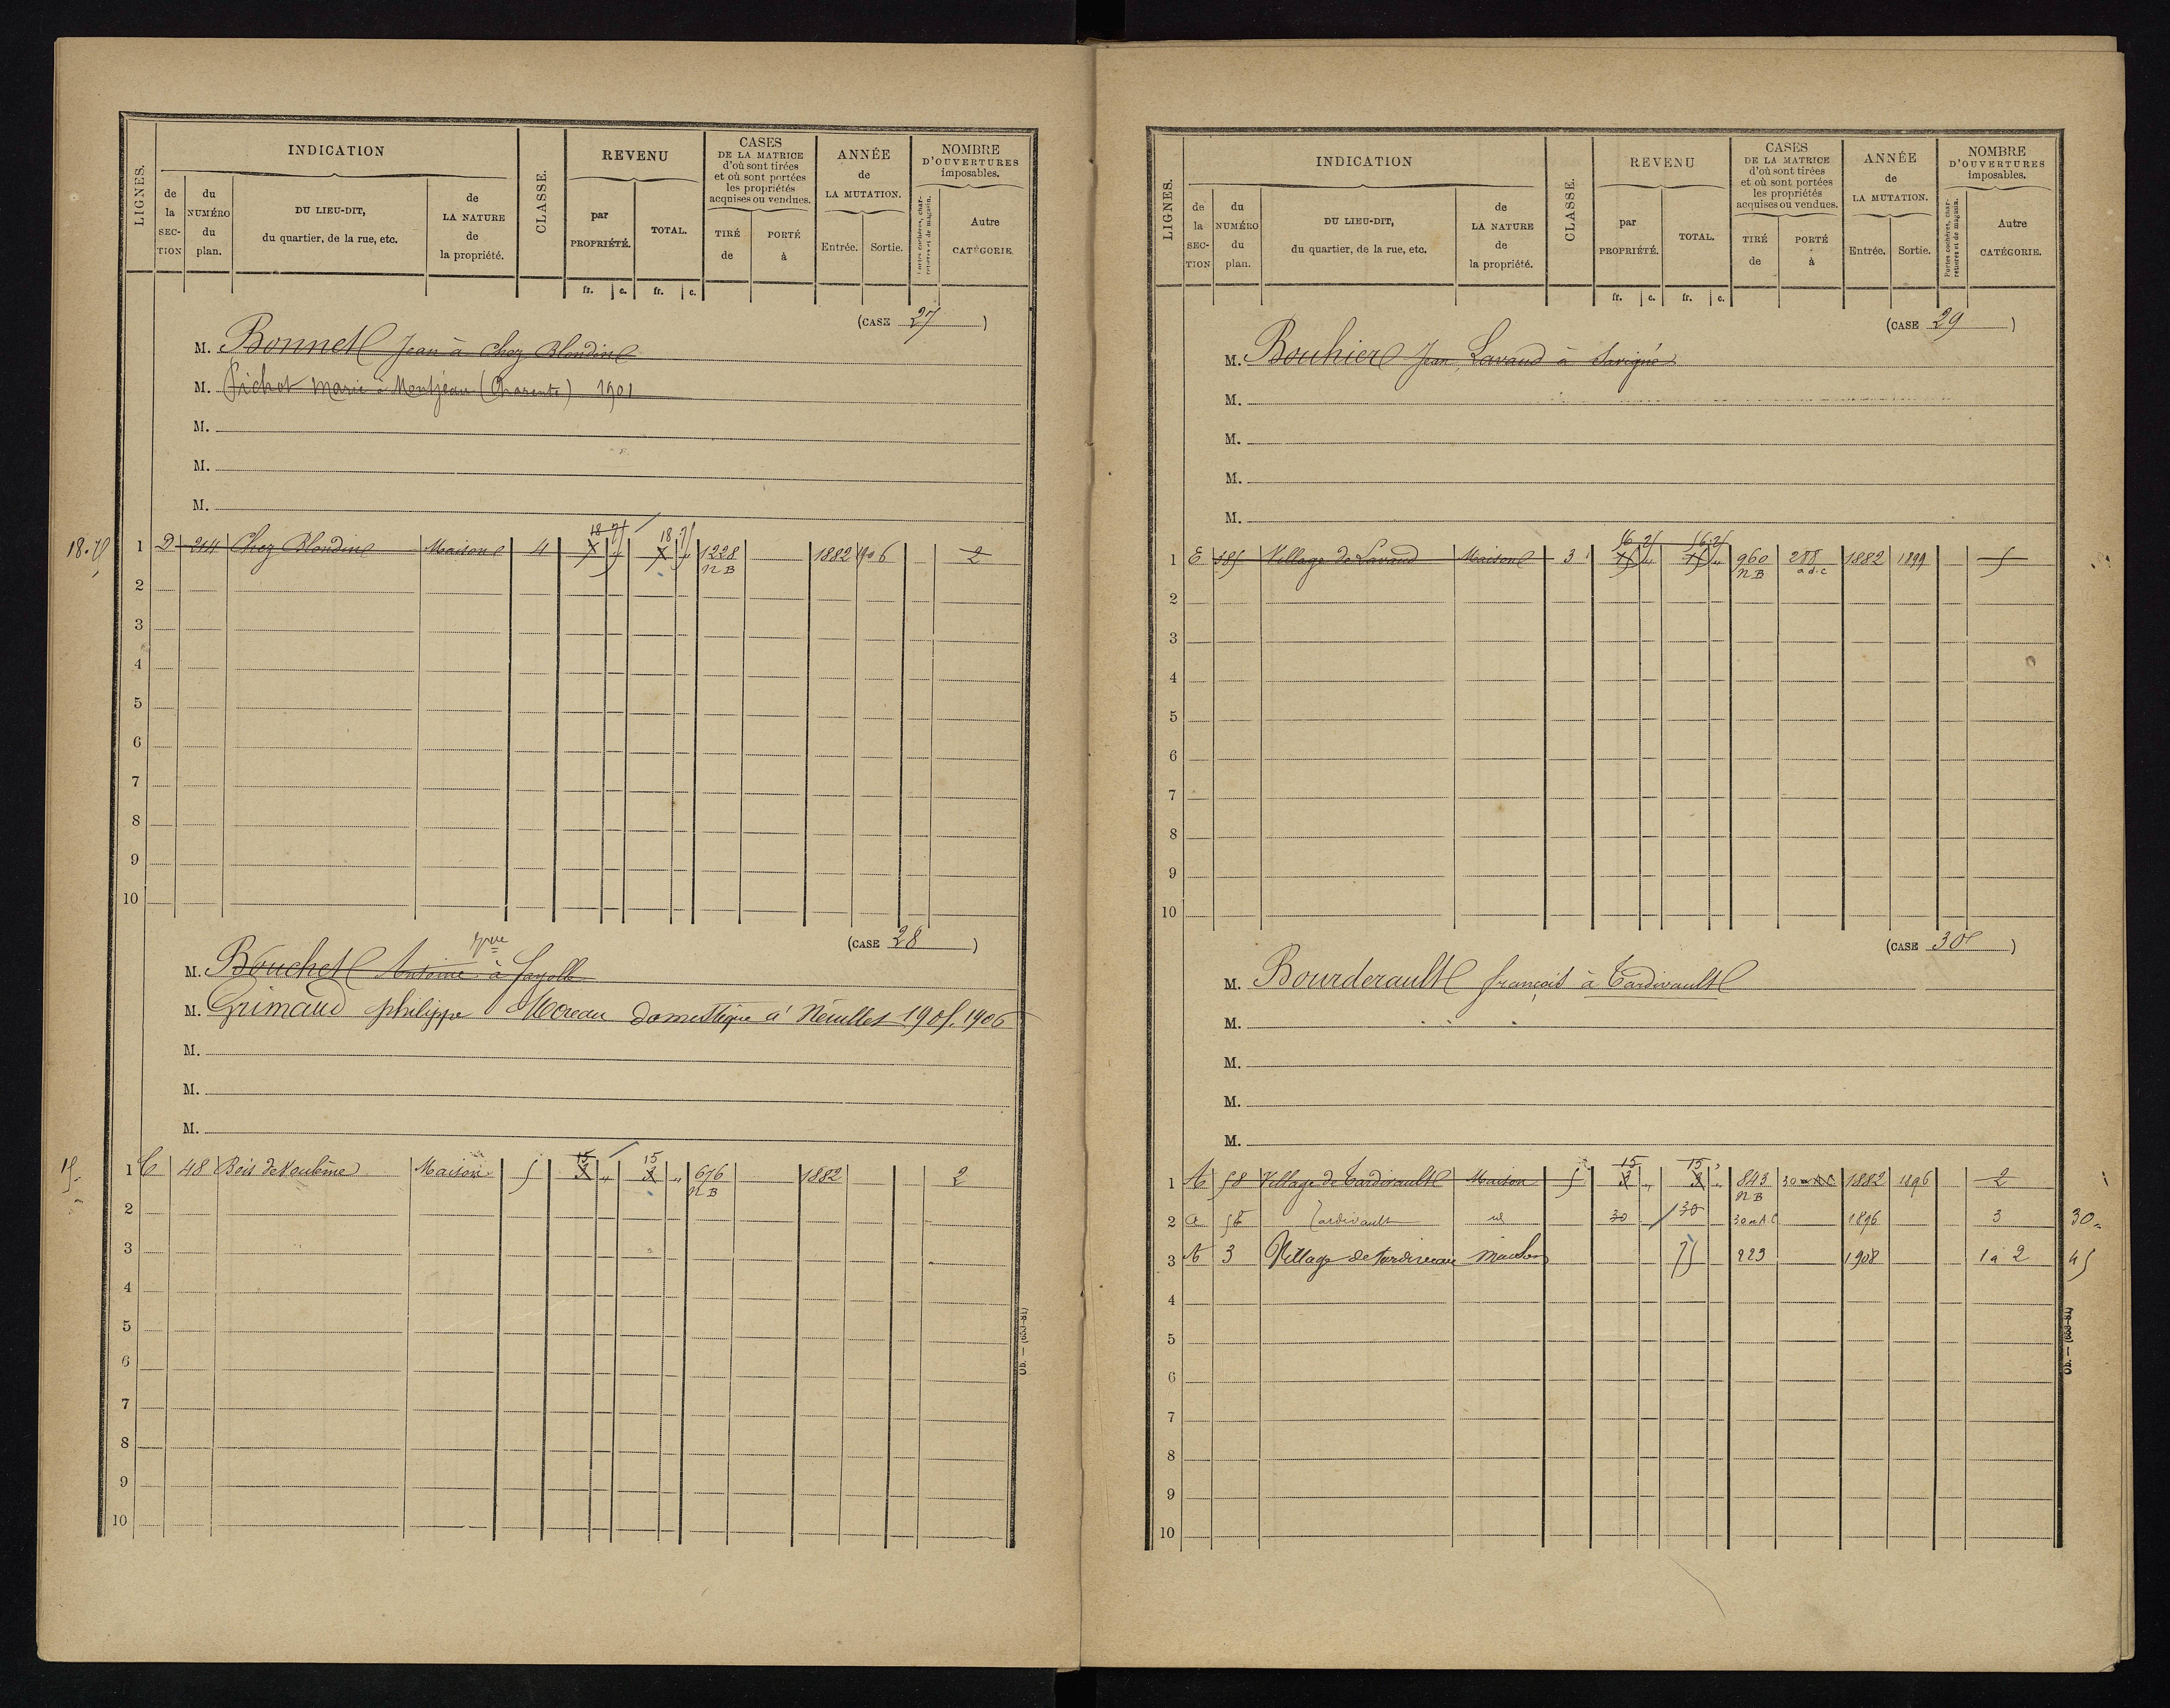 LIGNES. INDICATION CLASSE. REVENU CASES DE LA MATRICE d'où sont tirées et où sont portées les propriétés acquises ou vendues. ANNÉE de LA MUTATION. NOMBRE D'OUVERTURES imposables.
de la SECTION du NUMÉRO du plan. DU LIEU-DIT, du quartier, de la rue, etc. de LA NATURE de la propriété. par PROPRIÉTÉ. TOTAL. TIRÉ de PORTÉ à Entrée. Sortie. Portes cochères, charretières et de magasin. Autre CATÉGORIE.
fr. c. fr. c.
(CASE 27)
M. Bonnet Jean à Chez Blondin
M. Pichot Marie à Montjean (Charente) 1901
M.
M.
M.
18.75 1 D 244 Chez Blondin Maison 4 18 75 18 75 1228 1882 1906 2
NB
2
3
4
5
6
7
8
9
10
(CASE 28)
M. Bouchet Antoine à Fayolle
M. Grimaud philippe Moreau domestique à Néuillet 1905. 1906
M.
M.
M.
15. 1 C 48 Bois de Voulême Maison 5 15 3 " 15 3 " 676 1882 2
NB
2
3
4
5
6
7
8
9
10
Ob. — (653-81)
LIGNES. INDICATION CLASSE. REVENU CASES DE LA MATRICE d'où sont tirées et où sont portées les propriétés acquises ou vendues. ANNÉE de LA MUTATION. NOMBRE D'OUVERTURES imposables.
de la SECTION du NUMÉRO du plan. DU LIEU-DIT, du quartier, de la rue, etc. de LA NATURE de la propriété. par PROPRIÉTÉ. TOTAL. TIRÉ de PORTÉ à Entrée. Sortie. Portes cochères, charretières et de magasin. Autre CATÉGORIE.
fr. c. fr. c.
(CASE 29)
M. Bouhier Jean, Lavaud à Savigné
M.
M.
M.
M.
1 E 585 Village de Lavaud Maison 3 56 25 56 25 960 288 1882 1899 5
NB a d.c
2
3
4
5
6
7
8
9
10
(CASE 30)
M. Bourderault françois à Tardivault
M.
M.
M.
M.
1 A 58 Village de Tardivault Maison 5 15 3 " 15 3 " 843 30 m A.C 1882 1896 2
NB
2 A 58 Tardivault id 30 30 30 m A.C 1896 3 30
3 A 3 Village de Tardiveau maison 75 223 1908 1 a 2 45
4
5
6
7
8
9
10
Ob. — (653-81)